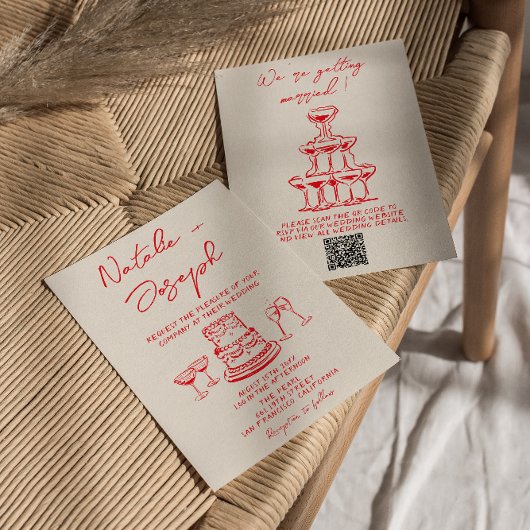 We're getting
married!
PLEASE SCAN THE QR CODE TO
RSVP VIA OUR WEDDING WEBSITE
ND VIEW ALL WEDDING DETAILS.
Natalie +
Joseph
REQUEST THE PLEASURE OF YOUR
COMPANY AT THEIR WEDDING
AUGUST 15TH, 20XX
1:00 IN THE AFTERNOON
THE PEARL
601 19TH STREET
SAN FRANCISCO, CALIFORNIA
Reception to follow